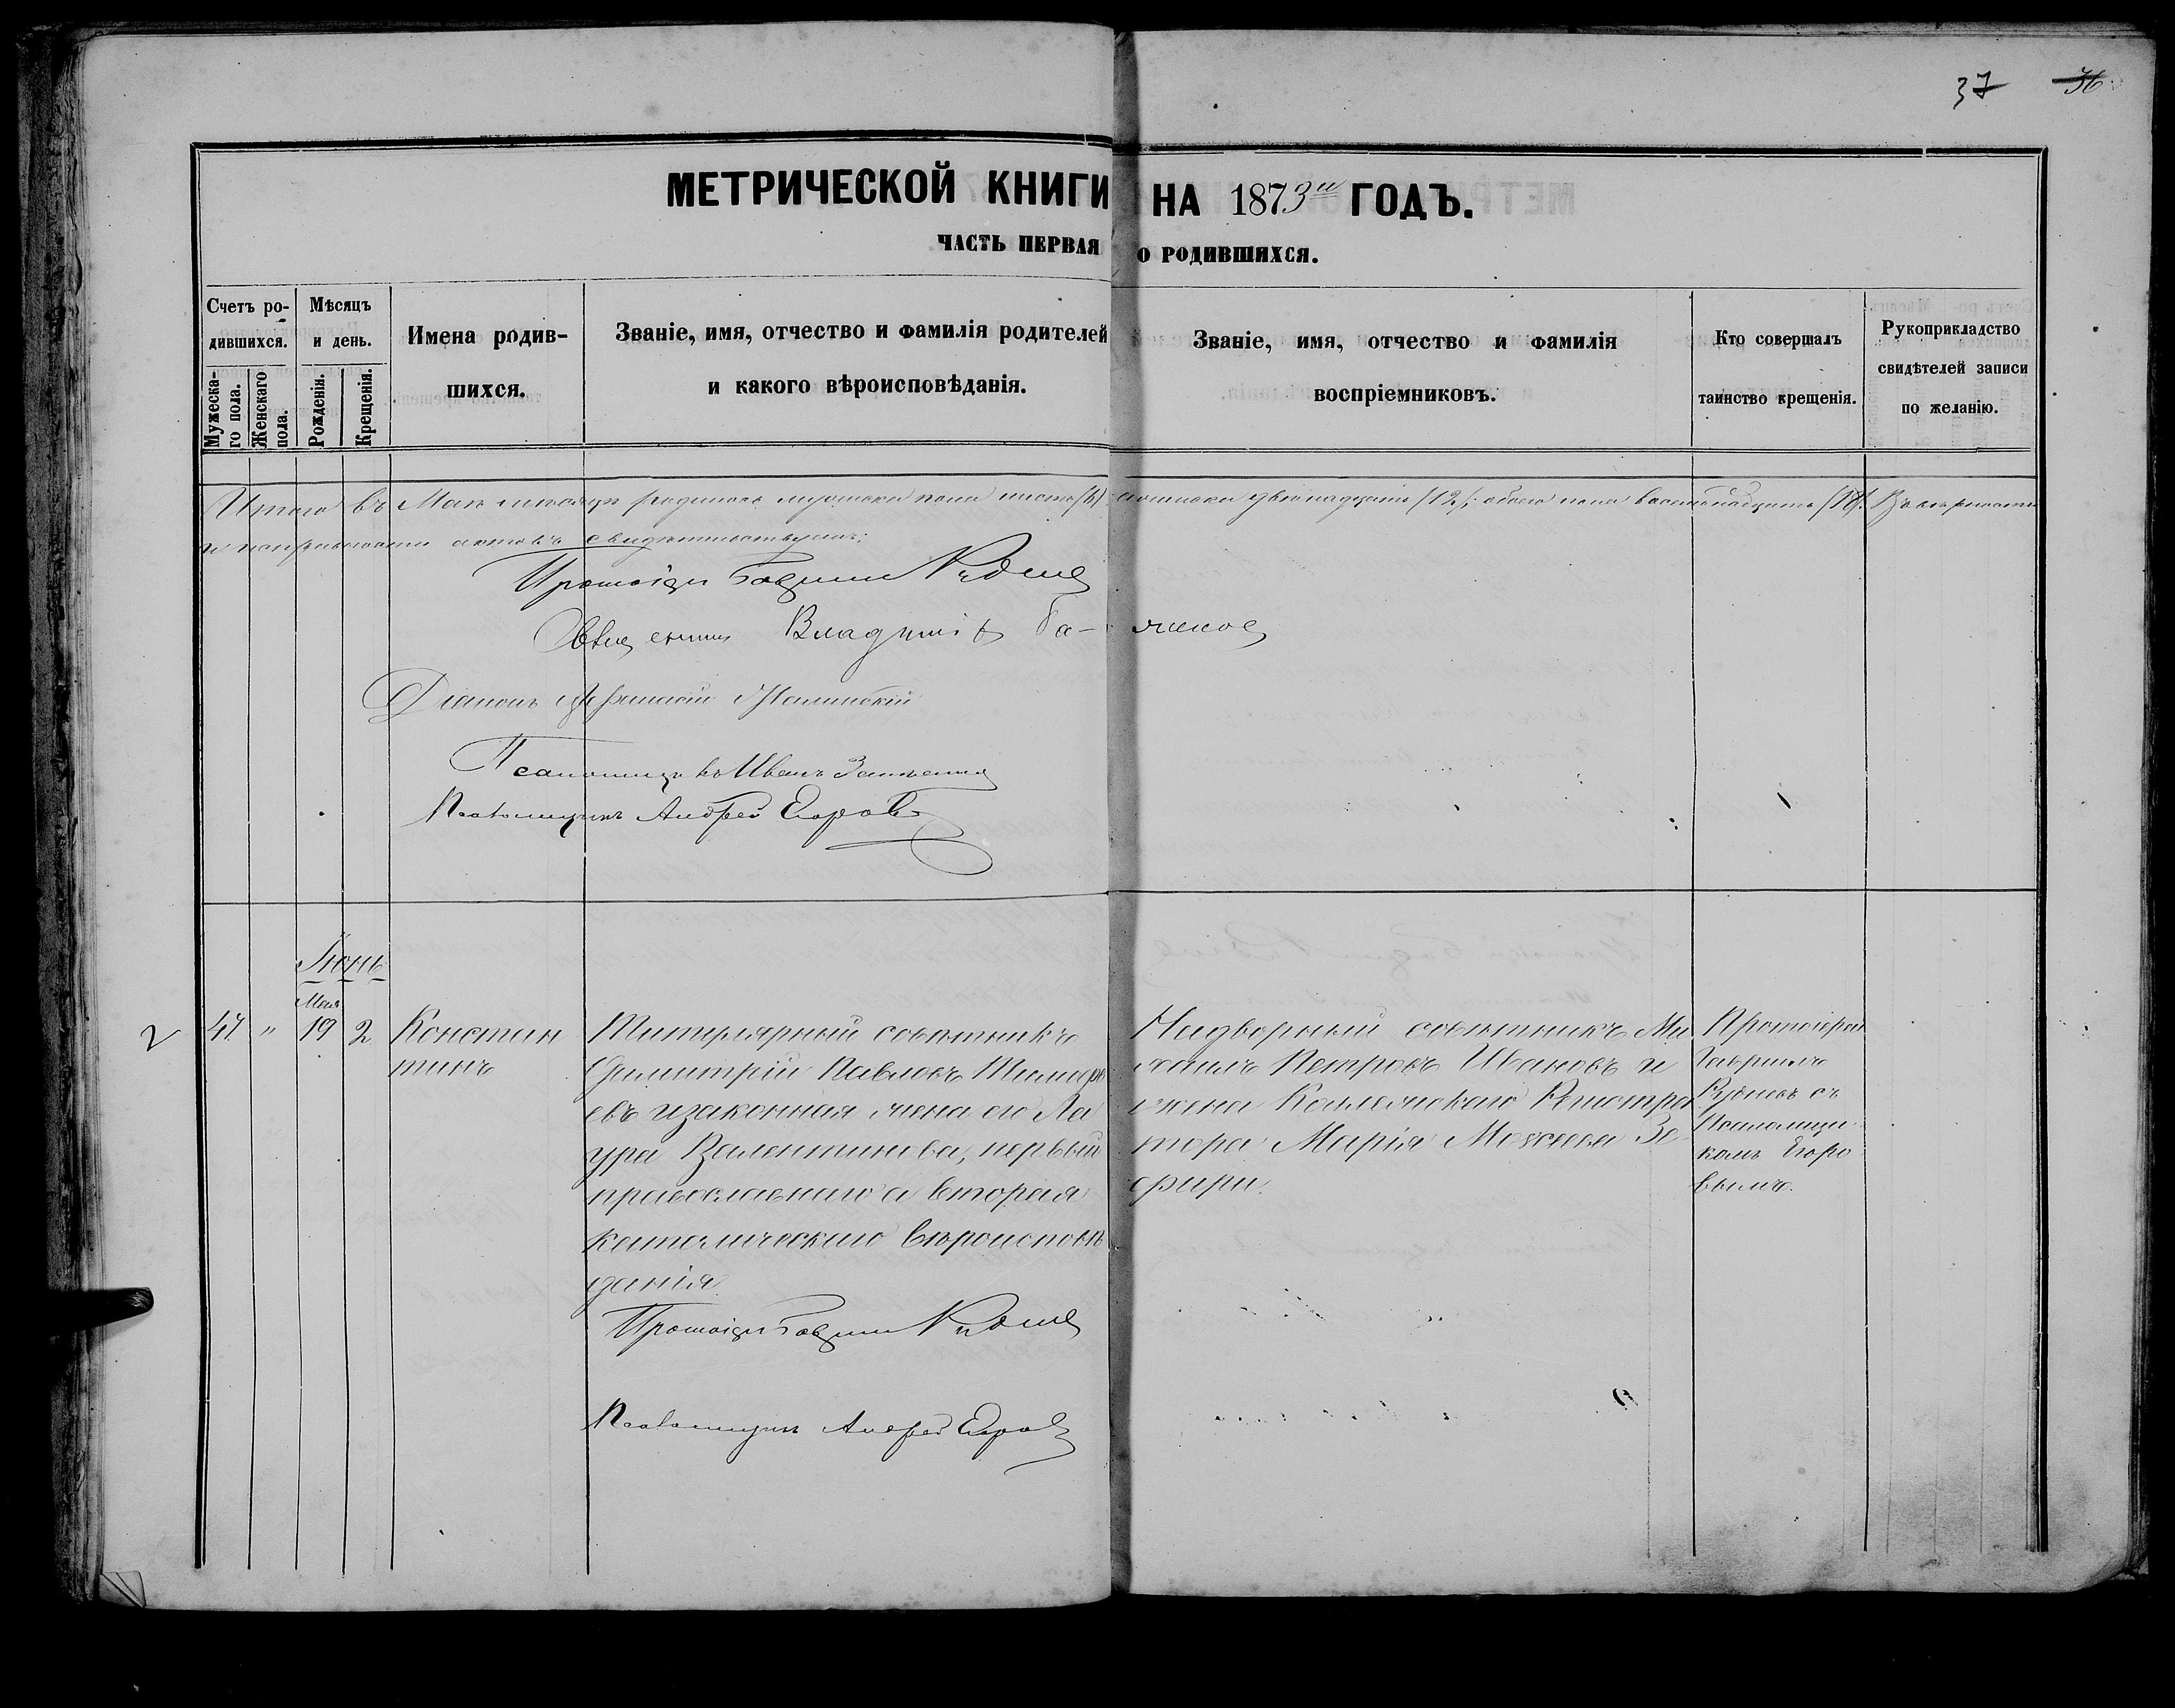 37 36
МЕТРИЧЕСКОЙ КНИГИ НА 1873й ГОДЪ.
ЧАСТЬ ПЕРВАЯ О РОДИВШИХСЯ.
Счетъ ро-
дившихся.
Мужеска-
го пола.
Женскаго
пола.
Мѣсяцъ
и день.
Рожденія.
Крещенія.
Имена родив-
шихся.
Званіе, имя, отчество и фамилія родителей
и какого вѣроисповѣданія.
Званіе, имя, отчество и фамилія
воспріемниковъ.
Кто совершалъ
таинство крещенія.
Рукоприкладство
свидѣтелей записи
по желанію.
Итого въ Маѣ мѣсяцѣ родилось мужеска пола шесть (6) женска двѣнадцать (12); обоего пола восемнадцать (18). Въ вѣрности
и исправности актовъ свидѣтельствуемъ:
Протоіерей Гавріилъ Рудневъ
Священникъ Владиміръ
Діаконъ
Псаломщикъ Иванъ
Псаломщикъ Андрей Егоровъ
Іюнь
Мая
2 47 " 19 2
Констан
тинъ
Титулярный совѣтникъ
Димитрій Павловъ
евъ и законная жена его Ла
ура Валентинова, первый
православнаго а вторая
католическаго вѣроисповѣ
данія.
Протоіерей Гавріилъ Рудневъ
Псаломщикъ Андрей Егоровъ
Надворный совѣтникъ Ми
хаилъ Петровъ Ивановъ и
жена Коллежскаго Регистра
тора Марія Моѵсеева Зе
фири.
Протоіерей
Гавріилъ
Рудневъ съ
Псаломщи
комъ Егоро
вымъ.